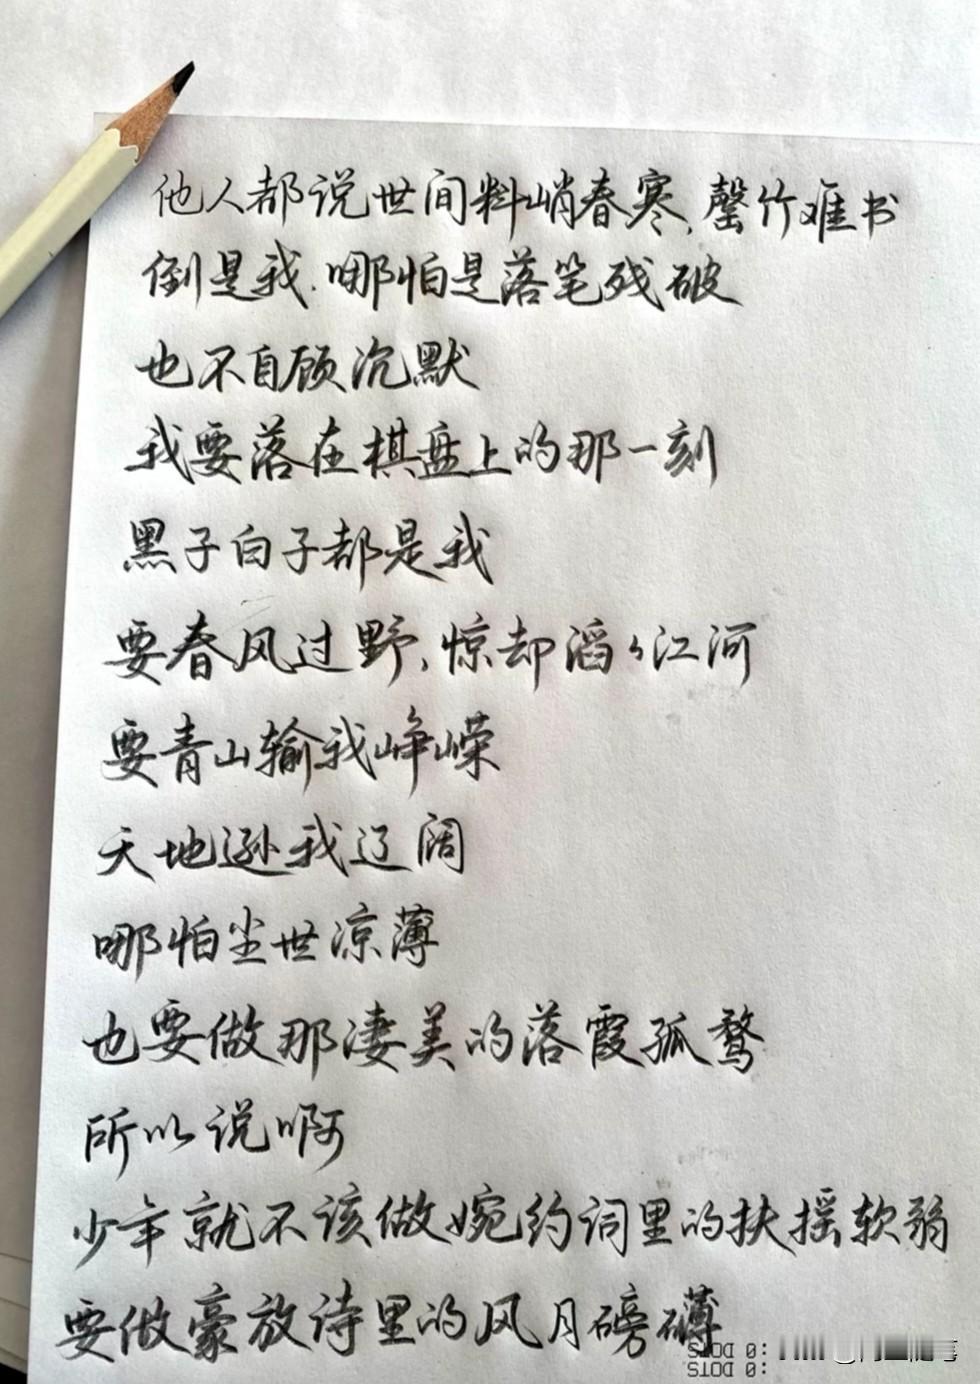 他人都说世间料峭春寒、罄竹难书
倒是我.哪怕是落笔残破
也不自顾沉默
我要落在棋盘上的那一刻
黑子白子都是我
要春风过野、惊却滔々江河
要青山输我峥嵘
天地逊我辽阔
哪怕尘世凉薄
也要做那凄美的落霞孤鹜
所以说啊
少年就不该做婉约词里的扶摇软弱
要做豪放诗里的风月磅礴